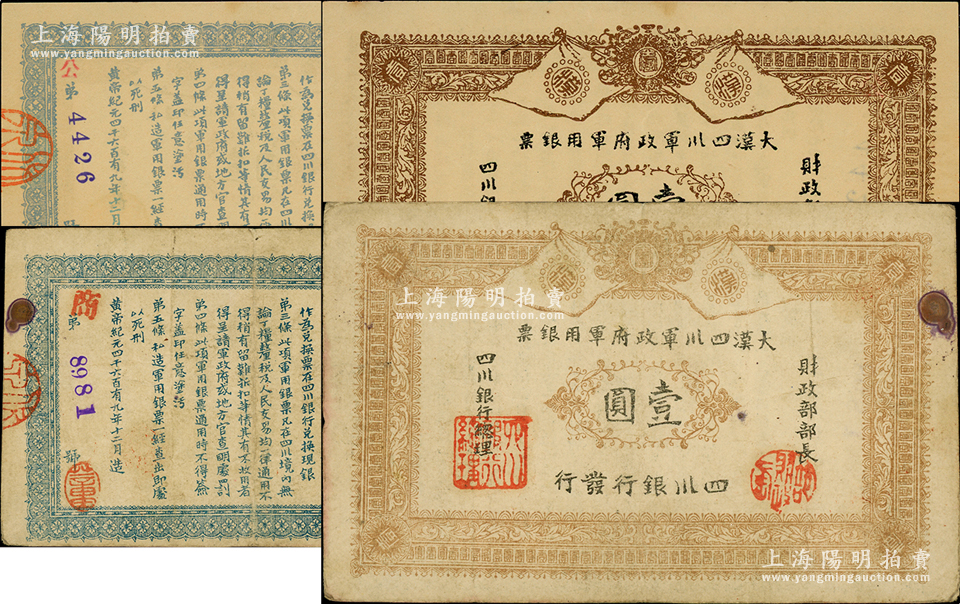 上海陽明拍賣
www.yangmingauction.com
作為兌換票在四川銀行兌換
第三條此項軍用銀票凡在四川
論丁糧釐稅及人民交易均一
得稍有留難折扣等情其有
得呈請軍政府或地方官查明
第四條此項軍用銀票通用時
字蓋印任意塗污
第五條私造軍用銀票一經查
以死刑
黃帝紀元四千六百有九年十二月
公第
4426
上海陽明拍賣
www.yangmingauction.com
大漢四川軍政府軍用銀票
財政
壹
圓
四川銀
作為兌換票在四川銀行兌換現銀
第三條此項軍用銀票凡在四川境內無
論丁糧釐稅及人民交易均一律通用不
得稍有留難折扣等情其有不故用者
得呈請軍政府或地方官查明處罰
第四條此項軍用銀票通用時不得簽
字蓋印任意塗污
第五條私造軍用銀票一經查出即處
以死刑
黃帝紀元四千六百有九年十二月造
商第
8981
號
上海陽明拍賣
www.yangmingauction.com
大漢四川軍政府軍用銀票
財政部部長
壹圓
四川銀行總理
四川銀行發行
上海陽明拍賣
www.yangmingauction.com